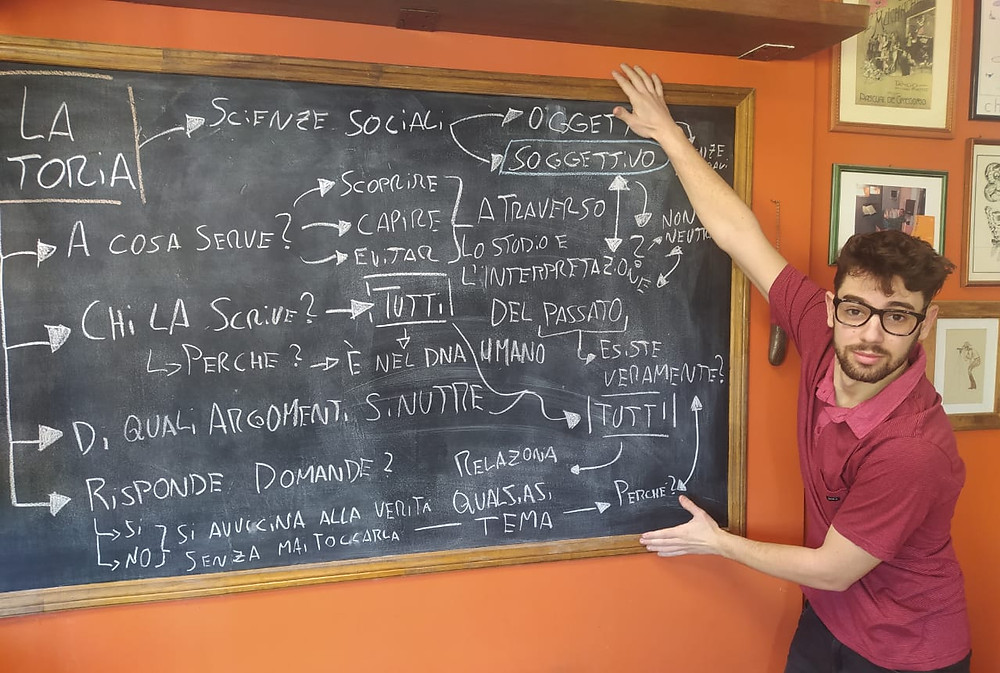 LA
TORIA
SCIENZE SOCIALI
OGGET
SOGGETTIVO
A COSA SERVE?
SCOPRIRE
CAPIRE
EVITAR
ATRAVERSO
LO STUDIO E
L'INTERPRETAZIONE
DEL PASSATO
NON
NEUTR
?
ESISTE
VERAMENTE?
CHI LA SCRIVE?
TUTTI
PERCHE? È NEL DNA UMANO
DI QUALI ARGOMENTI SI NUTRE
TUTTI
RISPONDE DOMANDE?
SI
NO
SI AVVICINA ALLA VERITÁ
SENZA MAI TOCCARLA
RELAZONA
QUALSIASI
TEMA
PERCHÉ?
PASCUAL DE GREGORIO